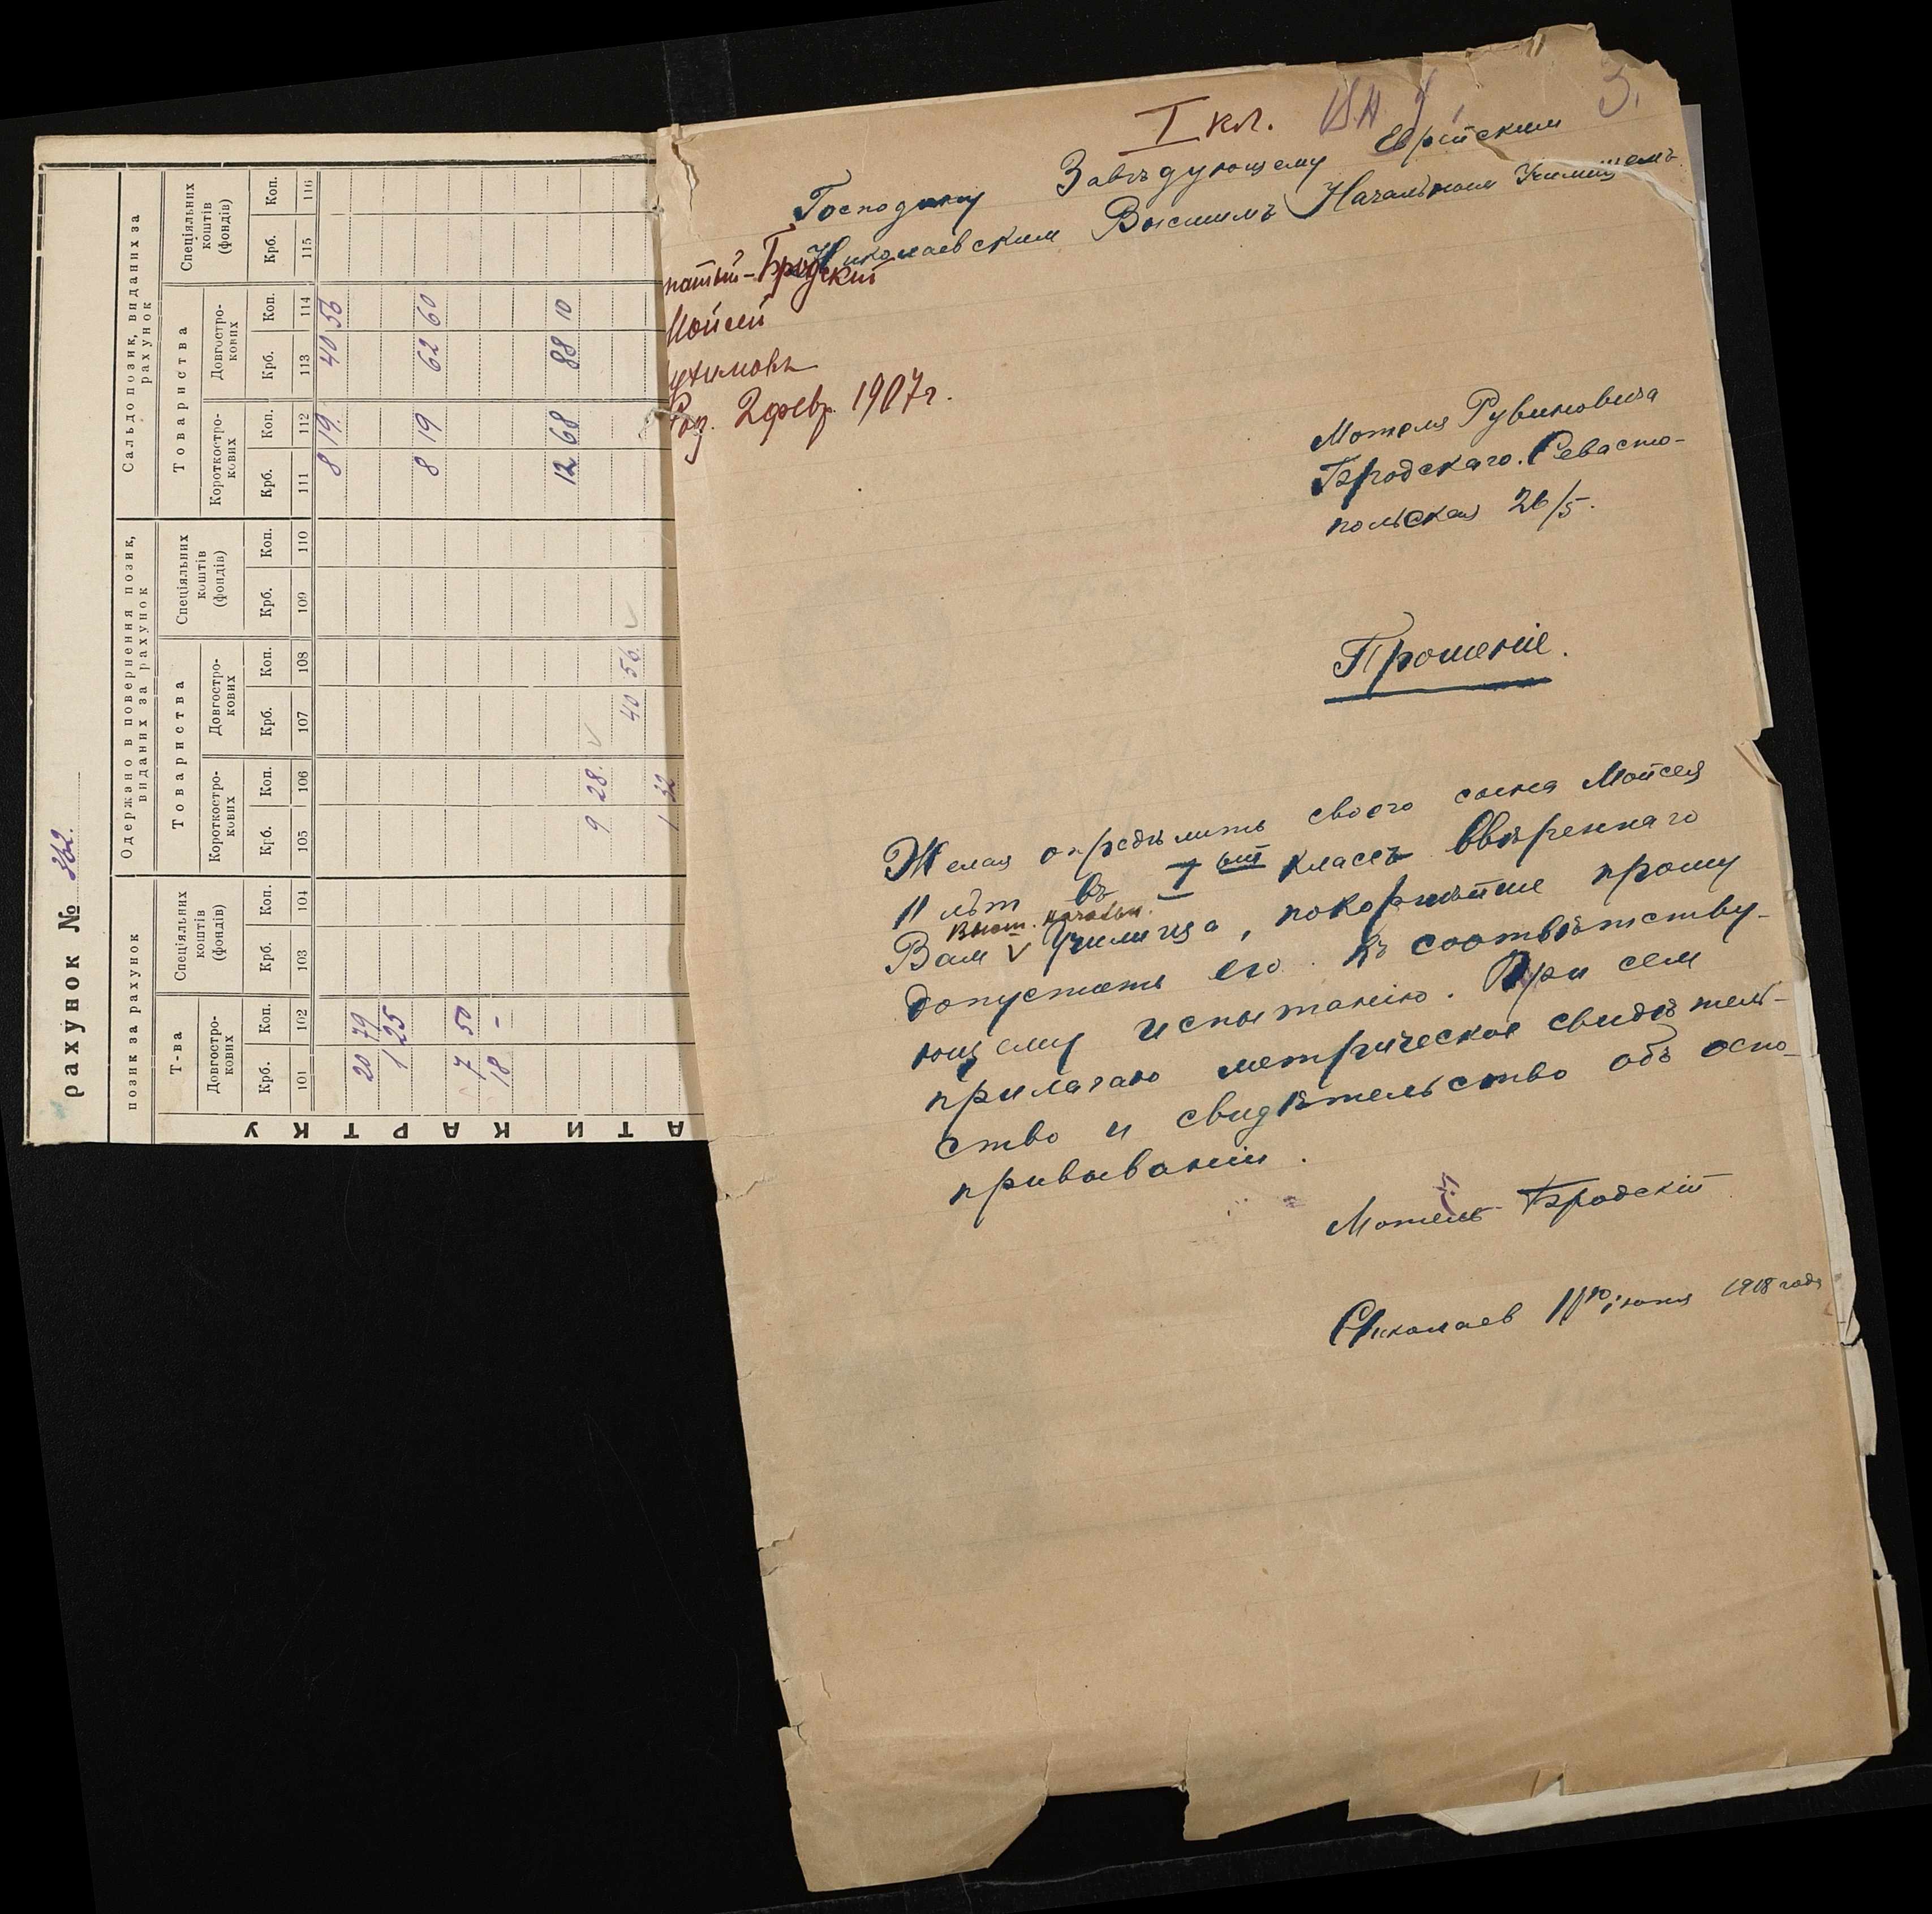 рахунок № 362.
позик за рахунок
Одержано в повернення позик, виданих за рахунок
Сальдо позик, виданих за рахунок
Т-ва
Спеціяльних коштів (фондів)
Товариства
Спеціяльних коштів (фондів)
Товариства
Спеціяльних коштів (фондів)
Довгостро-кових
Короткостро-кових
Довгостро-кових
Короткостро-кових
Довгостро-кових
Крб. Коп. Крб. Коп. Крб. Коп. Крб. Коп. Крб. Коп. Крб. Коп. Крб. Коп. Крб. Коп.
101 102 103 104 105 106 107 108 109 110 111 112 113 114 115 116
8 19. 40 56
20 79
1 25
8 19 62 60
7 50
18 -
12 68 88 10
9 28. V
40 56. V
1 32
АТИ КАРТКУ
I кл.
3.
Господину Завѣдующему Еврейским
Николаевским Высшимъ Начальным Училищемъ
патый-Бродскій
Мойсей
ухимовъ
Род. 2 февр. 1907 г.
Мотеля Рувиновича
Бродскаго. Севасто-
польская 26/5.
Прошеніе.
Желая опредѣлить своего сына Мойсея
11 лѣт въ I ый классъ ввѣреннаго
Высш. начальн.
Вам V Училища, покорнѣйше прошу
допустить его къ соотвѣтству-
ющему испытанію. При сем
прилагаю метрическое свидѣтель-
ство и свидѣтельство объ оспо-
прививаніи.
Мотель Бродскій
Николаев 11го іюня 1918 года